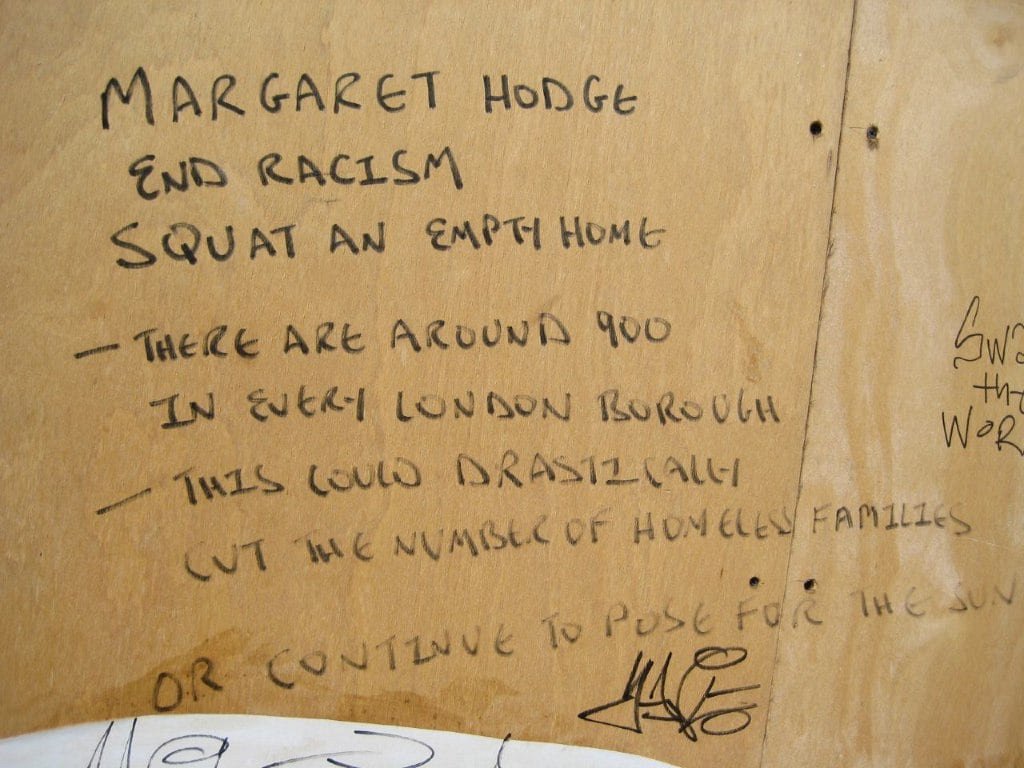 MARGARET HODGE
END RACISM
SQUAT AN EMPTY HOME
— THERE ARE AROUND 900
IN EVERY LONDON BOROUGH
— THIS COULD DRASTICALLY
CUT THE NUMBER OF HOMELESS FAMILIES
OR CONTINUE TO POSE FOR THE SUN